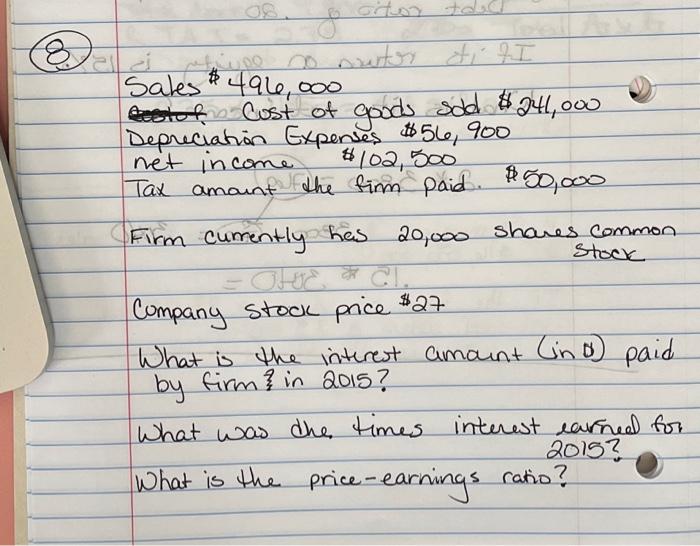 8
Sales $ 496,000
Cost of goods sold $ 241,000
Depreciation Expenses $56,900
net income $102,500
Tax amount the firm paid. $50,000
Firm currently has 20,000 shares common
Stock
Company stock price $27
What is the interest amount (in $) paid
by firm in 2015?
What was the times interest earned for
2015?
What is the price-earnings ratio?